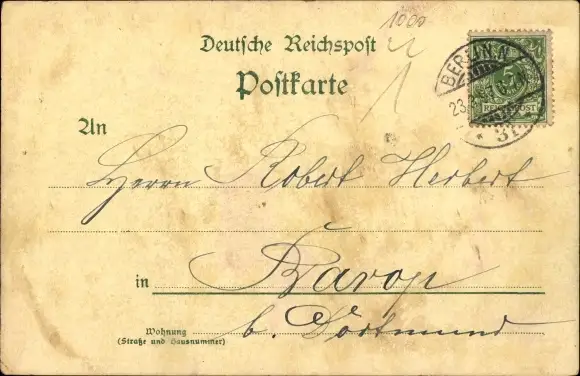 1000
Deutsche Reichspost
Postkarte
BERLIN. N
5
REICHSPOST
An
Herrn Robert Herbert
in Barop
Wohnung
(Straße und Hausnummer)
b. Dortmund